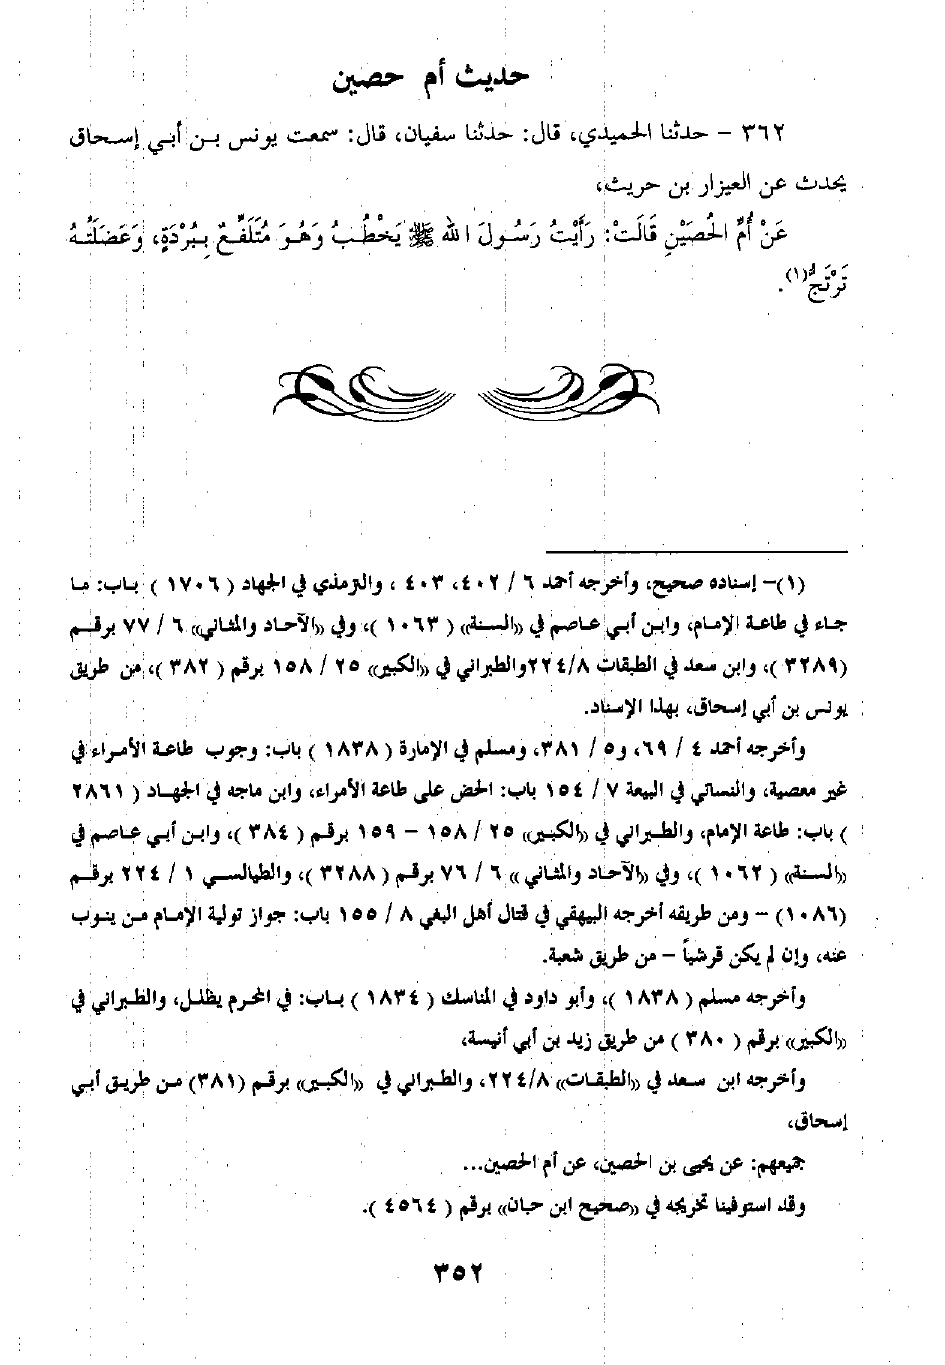 حديث أم حصين
٣٦٢ – حدثنا الحميدي، قال: حدثنا سفيان، قال: سمعت يونس بن أبي إسحاق
يحدث عن العيزار بن حريث،
عَنْ أُمِّ الحُصَيْنِ قَالَتْ: رَأَيْتُ رَسُولَ الله ﷺ يَخْطُبُ وَهُوَ مُتَلَفِّعٌ بِبُرْدَةٍ، وَعَضَلَتُهُ
تَرْتَجُّ(١).
(١)– إسناده صحيح، وأخرجه أحمد ٦ / ٤٠٢، ٤٠٣ ، والترمذي في الجهاد ( ١٧٠٦ ) باب: ما
جاء في طاعة الإمام، وابن أبي عاصم في «السنة» ( ١٠٦٣ )، وفي «الآحاد والمثاني» ٦ / ٧٧ برقم
(٣٢٨٩ )، وابن سعد في الطبقات ٢٢٤/٨ والطبراني في «الكبير» ٢٥ / ١٥٨ برقم ( ٣٨٢ )، من طريق
يونس بن أبي إسحاق، بهذا الإسناد.
وأخرجه أحمد ٤ / ٦٩، و٥ / ٣٨١، ومسلم في الإمارة ( ١٨٣٨ ) باب: وجوب طاعة الأمراء في
غير معصية، والنسائي في البيعة ٧ / ١٥٤ باب: الحض على طاعة الأمراء، وابن ماجه في الجهاد ( ٢٨٦١
) باب: طاعة الإمام، والطبراني في «الكبير» ٢٥ / ١٥٨ – ١٥٩ برقم ( ٣٨٤ )، وابن أبي عاصم في
«السنة» ( ١٠٦٢ )، وفي «الآحاد والمثاني» ٦ / ٧٦ برقم ( ٣٢٨٨ )، والطيالسي ١ / ٢٢٤ برقم
(١٠٨٦) – ومن طريقه أخرجه البيهقي في قتال أهل البغي ٨ / ١٥٥ باب: جواز تولية الإمام من ينوب
عنه، وإن لم يكن قرشياً – من طريق شعبة.
وأخرجه مسلم ( ١٨٣٨ )، وأبو داود في المناسك ( ١٨٣٤ ) باب: في المحرم يظلل، والطبراني في
«الكبير» برقم ( ٣٨٠ ) من طريق زيد بن أبي أنيسة،
وأخرجه ابن سعد في «الطبقات» ٢٢٤/٨، والطبراني في «الكبير» برقم (٣٨١) من طريق أبي
إسحاق،
جميعهم: عن يحيى بن الحصين، عن أم الحصين...
وقد استوفينا تخريجه في «صحيح ابن حبان» برقم ( ٤٥٦٤ ).
٣٥٢